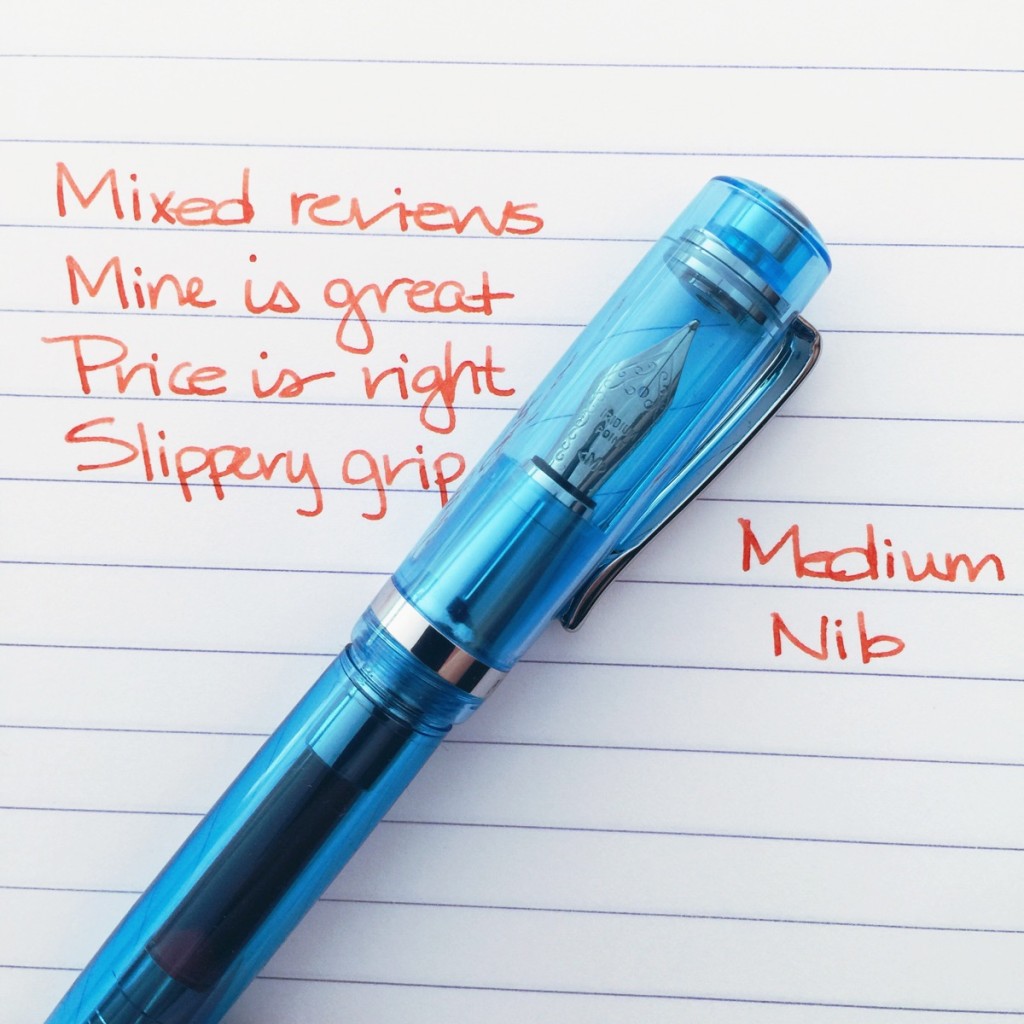 Mixed reviews
Mine is great
Price is right
Slippery grip
Medium
Nib